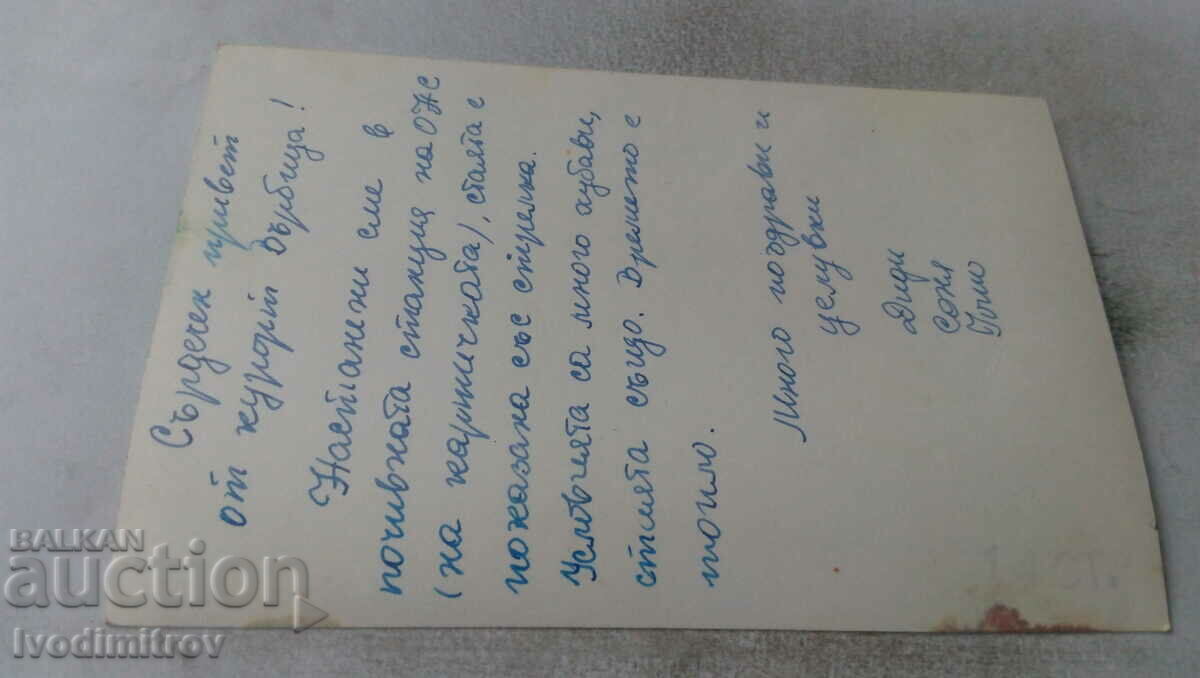 Сърдечен привет
от курорт Върбица!
Настанени сме в
почивната станция на ОНС
(на картичката), стаята е
показана със стрелка.
Условията са много хубави,
стаята също. Времето е
топло.
Много поздрави и
целувки
Диди
Соня
Гошо
BALKAN
auction
Ivodimitrov